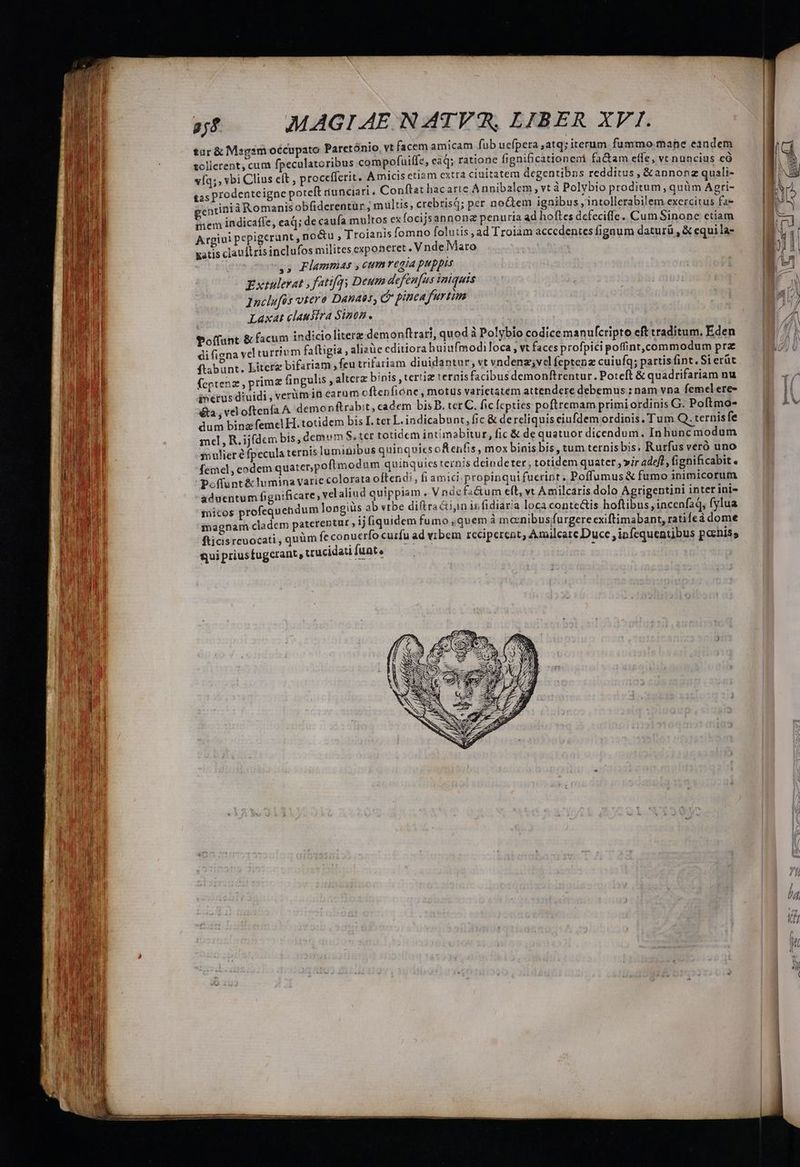 258 MAGIAE NATVR, LIBER XVI.
tur & Magam occupato Paretonio, vt facem amicam sub uespera, atq; iterum summo mane eandem
tollerent, cum speculatoribus composuisse, eaq; ratione significationem factam esse, vt nuncius eò
vsq;, vbi Clius est, processerit. Amicis etiam extra ciuitatem degentibus redditus, & annonæ quali-
tas prodenteigne potest nunciari. Constat hac arte Annibalem, vt à Polybio proditum, quùm Agri-
gentini à Romanis obsiderentur, multis, crebrisq; per noctem ignibus, intollerabilem exercitus fa-
mem indicasse, eaq; de causa multos ex socijs annonæ penuria ad hostes defecisse. Cum Sinone etiam
Argiui pepigerunt, noctu, Troianis somno solutis, ad Troiam accedentes signum daturū, & equi la-
xatis claustris inclusos milites exponeret. Vnde Maro
,, Flammas, cum regia puppis
Extulerat, fatisq; Deum defensus iniquis
Inclusos vtero Danaos, & pinea furtim
Laxat claustra Sinon.
Possunt & facum indicio literæ demonstrari, quod à Polybio codice manuscripto est traditum. Eden
di signa vel turrium fastigia, aliaùe editiora huiusmodi loca, vt faces prospici possint, commodum præ
stabunt. Literæ bifariam, seu trifariam diuidantur, vt vndenæ, vel septenæ cuiusq; partis sint. Si erūt
septenæ, primæ singulis, alteræ binis, tertiæ ternis facibus demonstrentur. Potest & quadrifariam nu
merus diuidi, verùm in earum ostensione, motus varietatem attendere debemus: nam vna semel ere-
cta, vel ostensa A demonstrabit, eadem bis B. ter C. sic septies postremam primi ordinis G. Postmo-
dum binæ semel H. totidem bis I. ter L. indicabunt, sic & de reliquis eiusdem ordinis. Tum Q. ternis se
mel, R. ijsdem bis, demum S. ter totidem intimabitur, sic & de quatuor dicendum. In hunc modum
mulier è specula ternis luminibus quinquies ostensis, mox binis bis, tum ternis bis. Rursus verò uno
semel, eodem quater, postmodum quinquies ternis deinde ter, totidem quater, vir adest, significabit.
Possunt & lumina varie colorata ostendi, si amici propinqui fuerint. Possumus & fumo inimicorum
aduentum significare, vel aliud quippiam. Vnde factum est, vt Amilcaris dolo Agrigentini inter ini-
micos prosequendum longiùs ab vrbe distracti, in insidiaria loca contectis hostibus, incensaq, sylua
magnam cladem paterentur, ij siquidem fumo, quem à mœnibus surgere existimabant, ratis se à dome
sticis reuocati, quùm se conuerso cursu ad vrbem reciperent, Amilcare Duce, insequentibus pœnis,
qui prius fugerant, trucidati sunt.